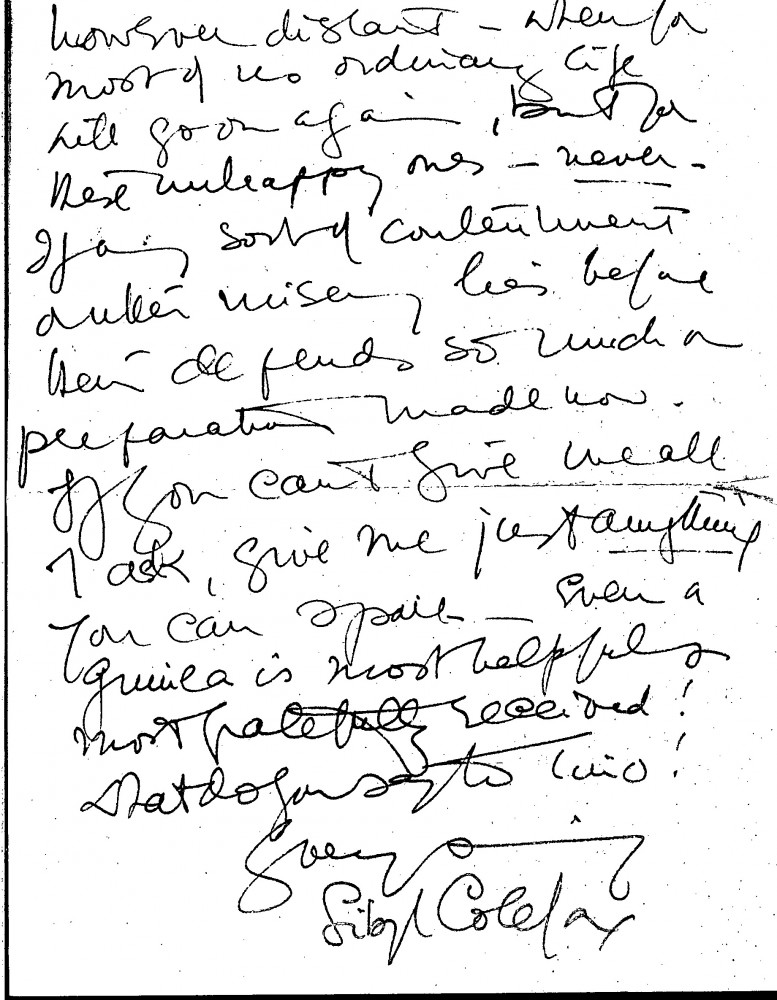 however distant – when for
most of us ordinary life
will go on again, but for
these unhappy ones – never –
If any sort of contentment
after misery lies before
them depends so much on
preparation made now.
If you can't give me all
I ask, give me just anything
You can spare – even a
guinea is most helpful &
most gratefully received!
What do you say to this!
Sibyl Colefax